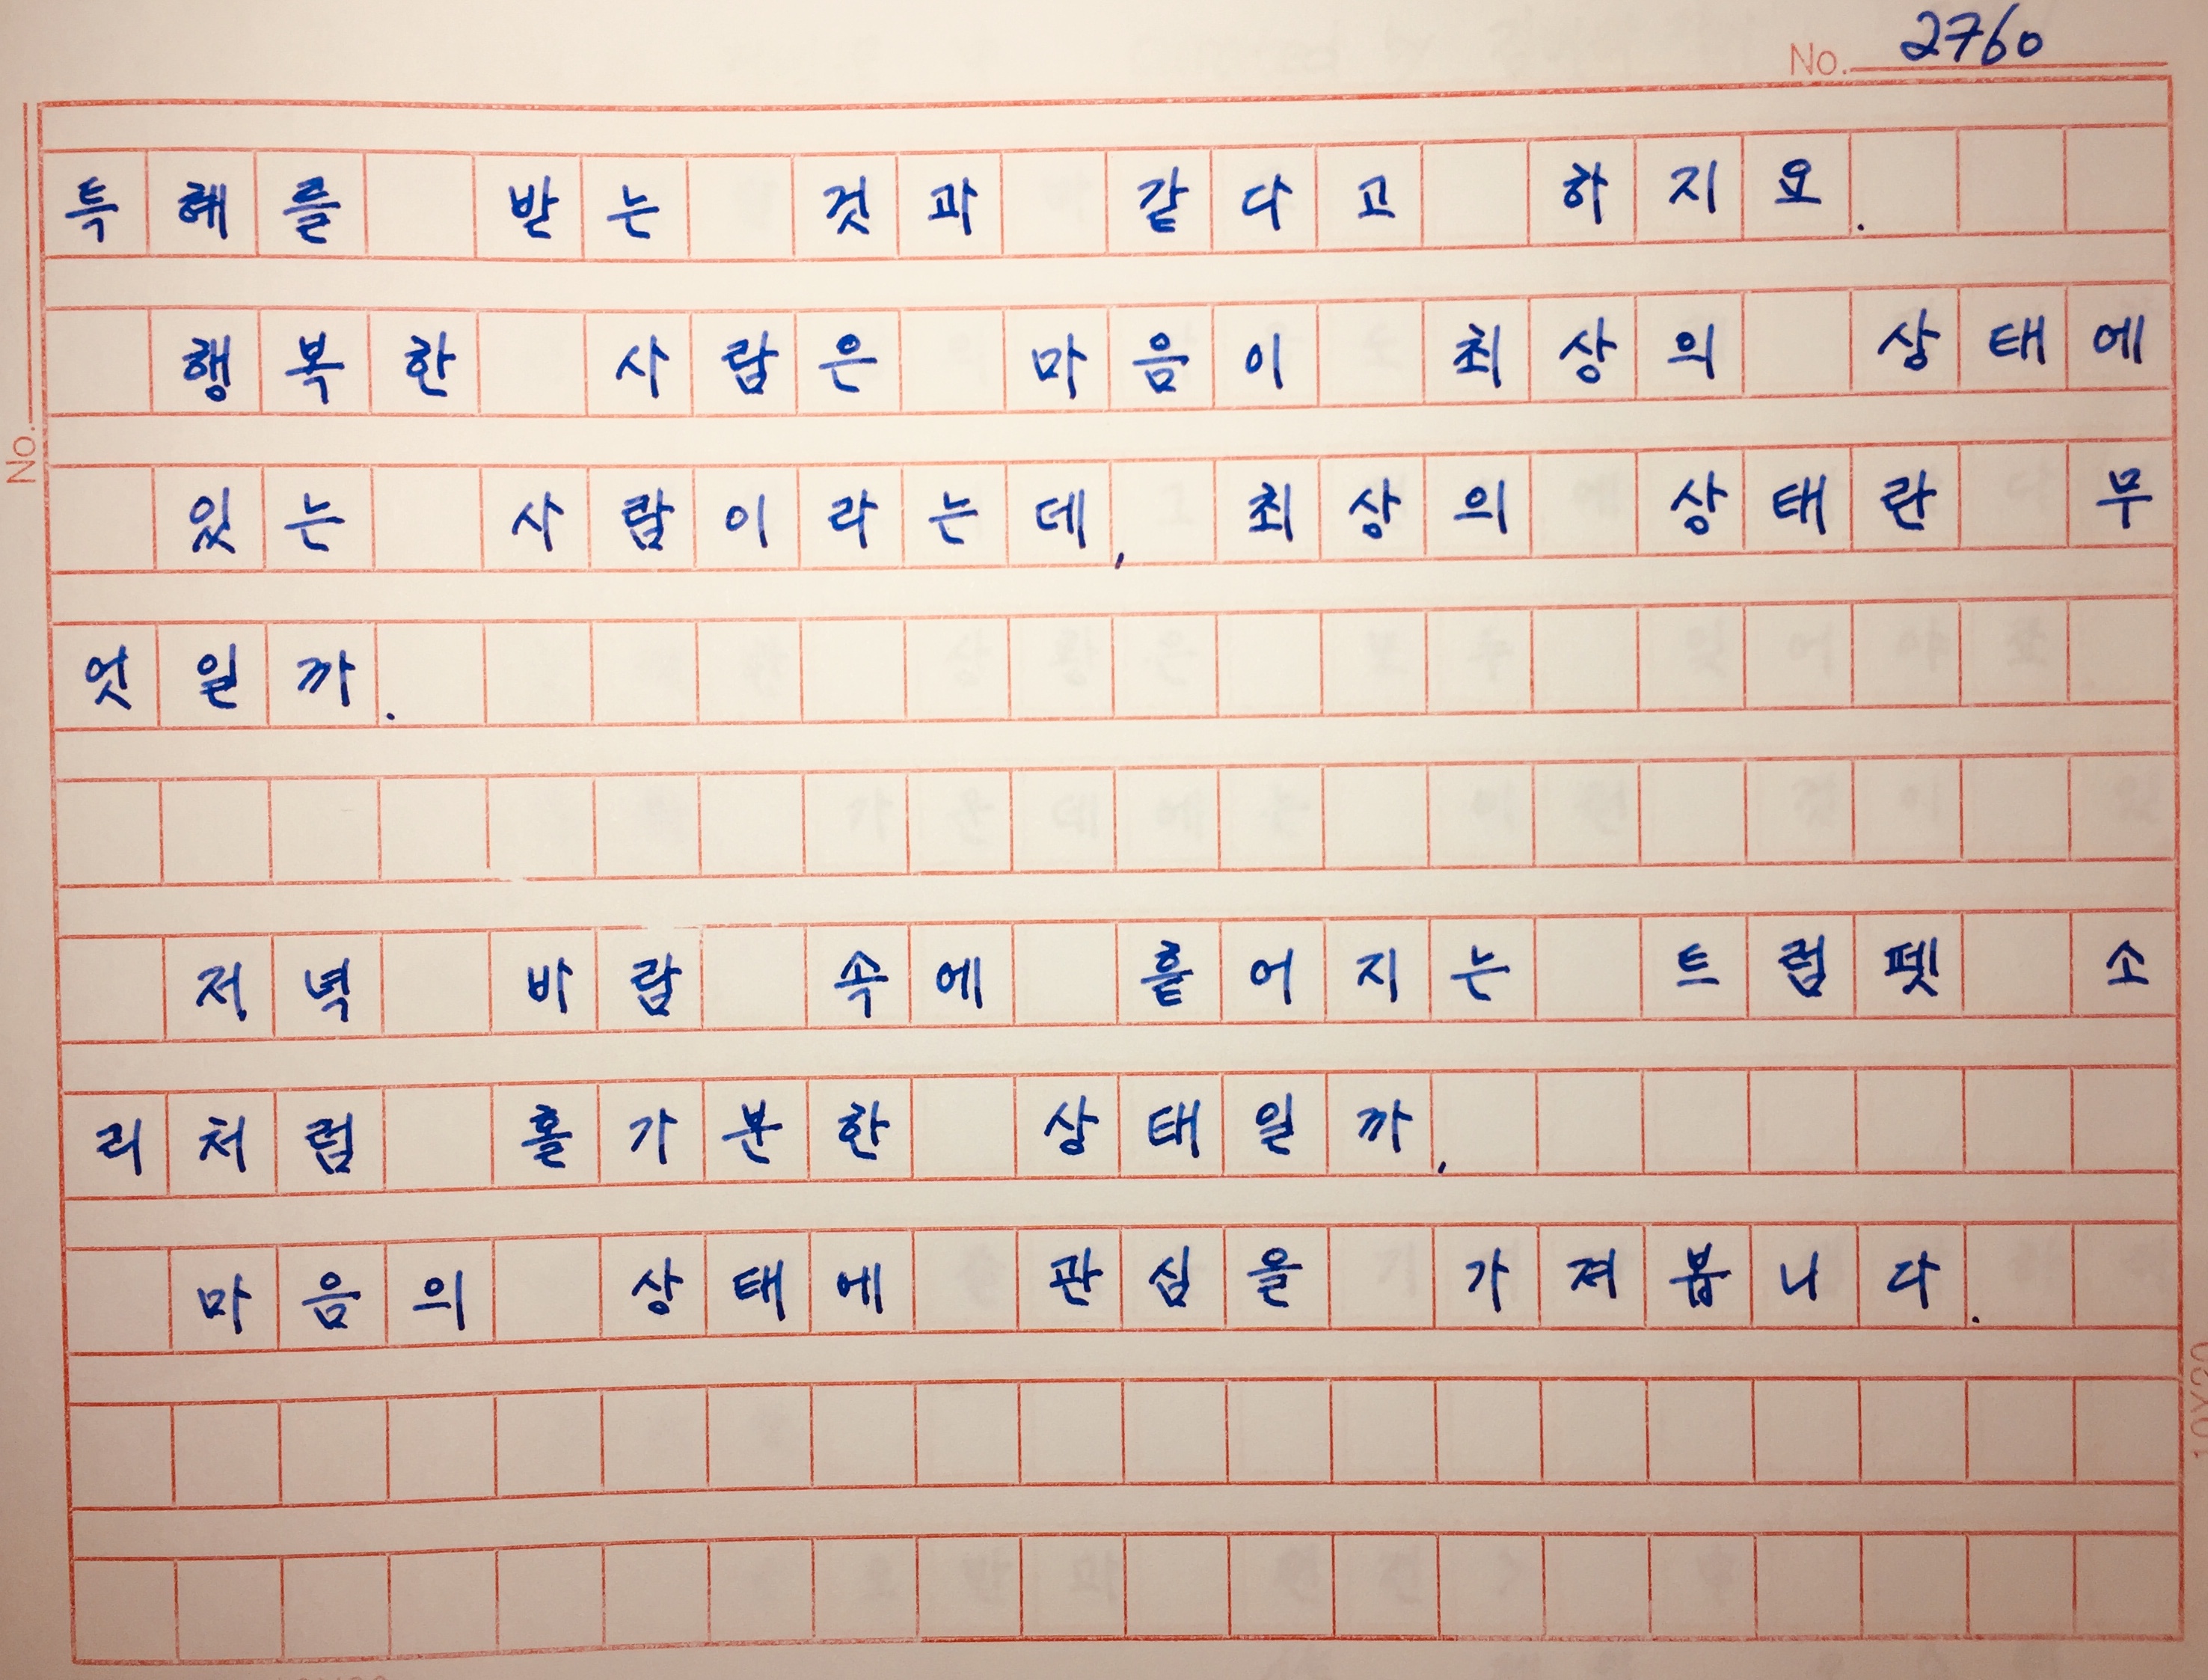 No. 2760
특혜를 받는 것과 같다고 하지요.
행복한 사람은 마음이 최상의 상태에
있는 사람이라는데, 최상의 상태란 무
엇일까.
저녁 바람 속에 흩어지는 트럼펫 소
리처럼 홀가분한 상태일까,
마음의 상태에 관심을 가져봅니다.
No.
10X20